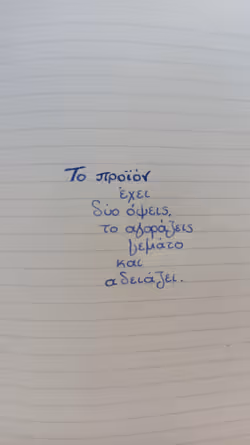 Το προϊόν
έχει
δύο όψεις,
το αγοράζεις
γεμάτο
και
αδειάζει.